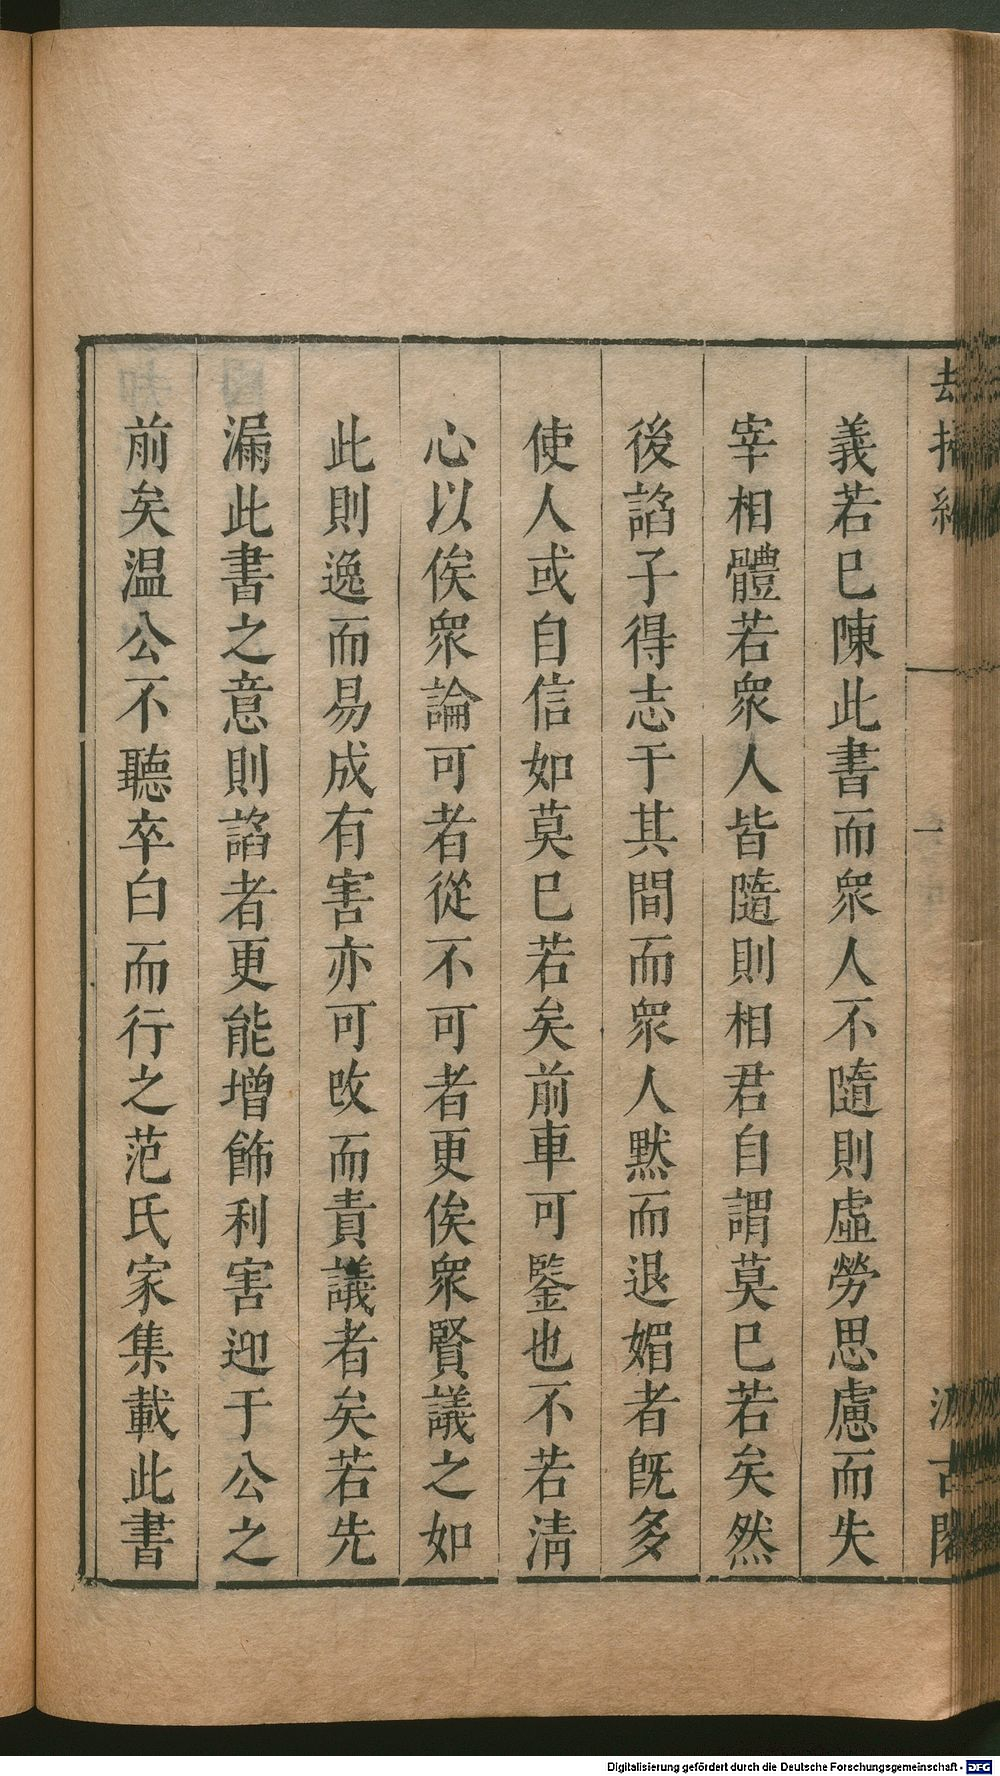 義若已陳此書而衆人不隨則虛勞思慮而失
宰相體若衆人皆隨則相君自謂莫已若矣然
後諂子得志于其間而衆人黙而退媚者旣多
使人或自信如莫已若矣前車可鑒也不若清
心以俟衆論可者從不可者更俟衆賢議之如
此則逸而易成有害亦可改而責議者矣若先
漏此書之意則諂者更能增飾利害迎于公之
前矣温公不聽卒白而行之范氏家集載此書
一
Digitalisierung gefördert durch die Deutsche Forschungsgemeinschaft - DFG